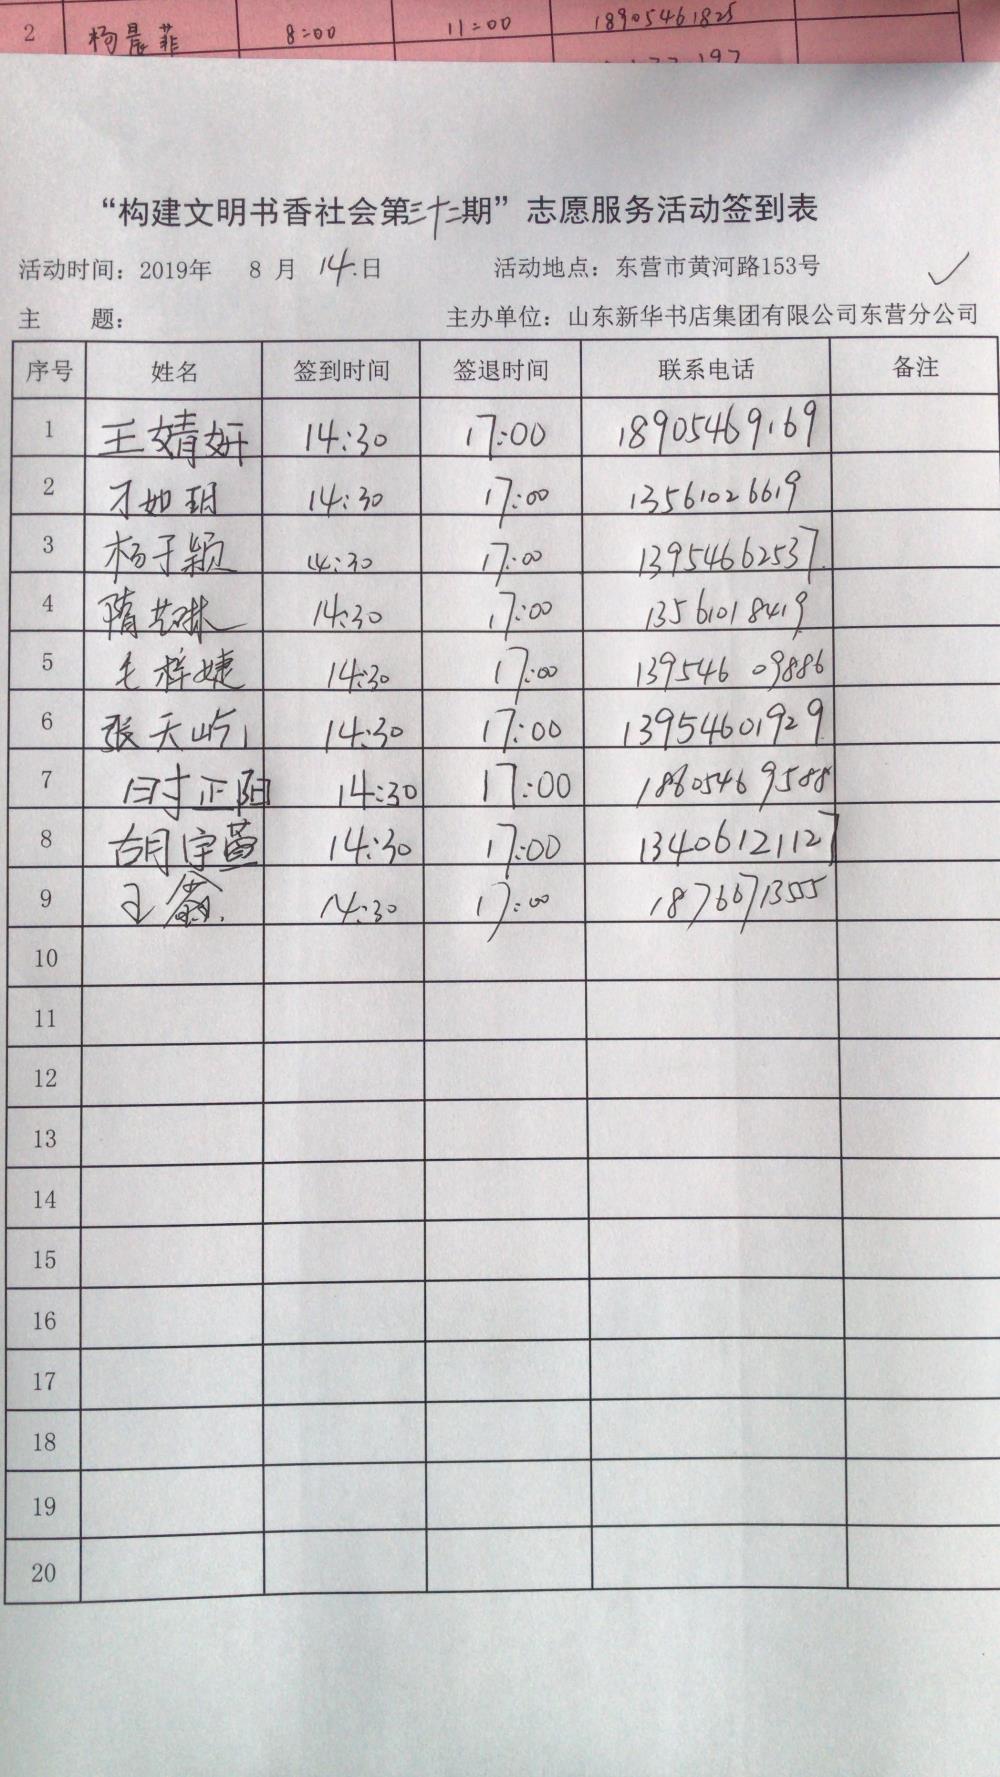 2 杨晨菲 8:00 11:00 18905461825
“构建文明书香社会第三十二期”志愿服务活动签到表
活动时间：2019年 8 月 14.日 活动地点：东营市黄河路153号
主 题： 主办单位：山东新华书店集团有限公司东营分公司
序号 姓名 签到时间 签退时间 联系电话 备注
1 王婧妍 14:30 17:00 18905469169
2 才如玥 14:30 17:00 13561026619
3 杨子颖 14:30 17:00 13954662537
4 隋艺琳 14:30 17:00 13561018419
5 毛梓婕 14:30 17:00 13954609886
6 张天屿 14:30 17:00 13954601929
7 时正阳 14:30 17:00 18805469588
8 胡宇萱 14:30 17:00 13406121127
9 王 14:30 17:00 18766713555
10
11
12
13
14
15
16
17
18
19
20